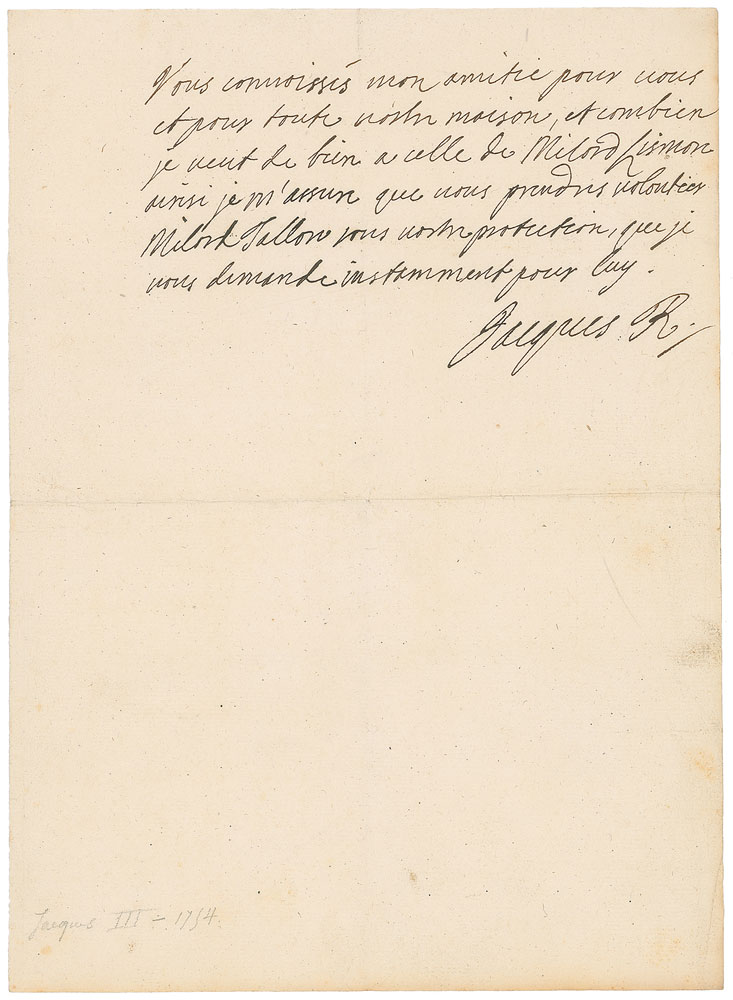 Vous connoissés mon amitie pour vous
et pour toute vostre maison, et combien
je veut de bien a celle de Milord Lismor
ainsi je m'assure que vous prendres volontier
Milord Tallow sous vostre protection, que je
vous demande instamment pour luy.
Jacques R.
Jacques III – 1754